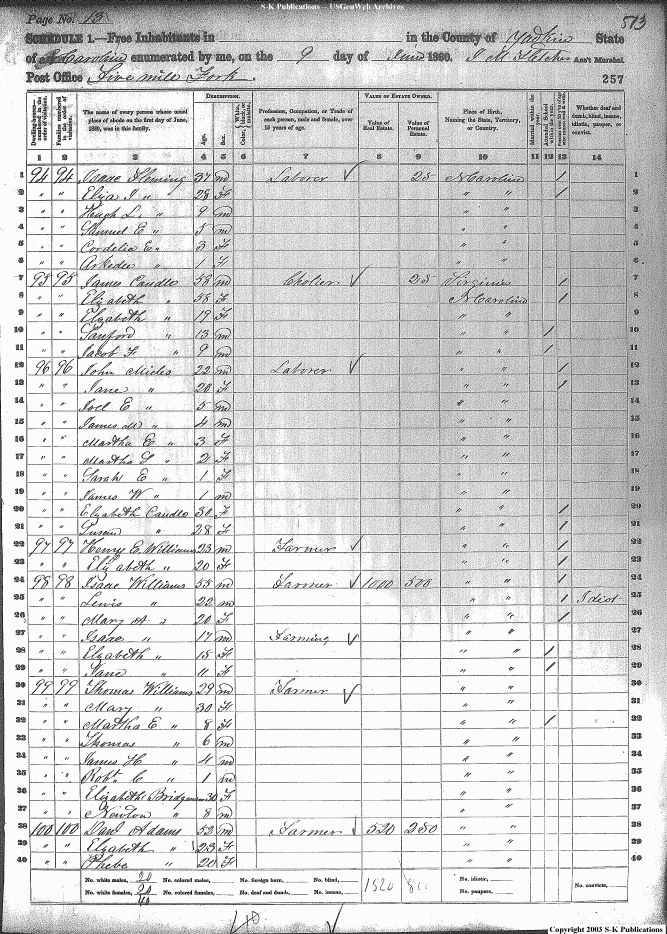 S-K Publications -- USGenWeb Archives
Page No. 13 513
SCHEDULE 1.—Free Inhabitants in in the County of Yadkin State
of N Carolina enumerated by me, on the 9 day of June 1860. J M Fletcher Ass't Marshal.
Post Office Five mile Fork. 257
Dwelling-houses numbered in the order of visitation. Families numbered in the order of visitation. The name of every person whose usual place of abode on the first day of June, 1860, was in this family. DESCRIPTION. Age. Sex. Color, White, black, or mulatto. Profession, Occupation, or Trade of each person, male and female, over 15 years of age. VALUE OF ESTATE OWNED. Value of Real Estate. Value of Personal Estate. Place of Birth, Naming the State, Territory, or Country. Married within the year. Attended School within the year. Whether deaf and dumb, blind, insane, idiotic, pauper, or convict.
1 2 3 4 5 6 7 8 9 10 11 12 13 14
1 94 94 Isaac Fleming 37 m Laborer 25 N Carolina / 1
2 " " Eliza J " 28 F " " / 2
3 " " Hugh L. " 9 m " " 3
4 " " Samuel E " 5 m " " 4
5 " " Cordelia E " 3 F " " 5
6 " " " 1 F " " 6
7 95 95 James Caudle 58 m 25 Virginia / 7
8 " " Elizabeth " 55 F N Carolina / 8
9 " " Elizabeth " 19 F " " 9
10 " " Sanford " 13 m " " / 10
11 " " Jacob F " 9 m " " / 11
12 96 96 John 22 m Laborer " " / 12
13 " " Jane " 20 F " " / 13
14 " " Joel E " 5 m " " 14
15 " " James M " 4 m " " 15
16 " " Martha E " 3 F " " 16
17 " " Martha " 2 F " " 17
18 " " Sarah E " 1 F " " 18
19 " " James W " 1 m " " 19
20 " " Elizabeth Caudle 30 F " " / 20
21 " " Susan " 28 F " " / 21
22 97 97 Henry C. Williams 23 m Farmer " " / 22
23 " " Elizabeth " 20 F " " / 23
24 98 98 Isaac Williams 55 m Farmer 1000 500 " " / 24
25 " " Lewis " 22 m " " / Idiot 25
26 " " Mary A " 20 F " " / 26
27 " " Isaac " 17 m Farming " " 27
28 " " Elizabeth " 15 F " " / 28
29 " " Jane " 11 F " " / 29
30 99 99 Thomas Williams 29 m Farmer " " 30
31 " " Mary " 30 F " " 31
32 " " Martha E " 8 F " " / 32
33 " " Thomas " 6 m " " 33
34 " " James H " 4 m " " 34
35 " " Robt C " 1 m " " 35
36 " " Elizabeth 30 F " " 36
37 " " Newton " 8 m " " 37
38 100 100 Danl Adams 52 m Farmer 520 250 " " 38
39 " " Elizabeth " 23 F " " 39
40 " " Pheba " 20 F " " 40
No. white males, 20 No. colored males, No. foreign born, No. blind, 1520 No. idiotic, No. convicts,
No. white females, 20 No. colored females, No. deaf and dumb, No. insane, No. paupers,
40
40
Copyright 2003 S-K Publications